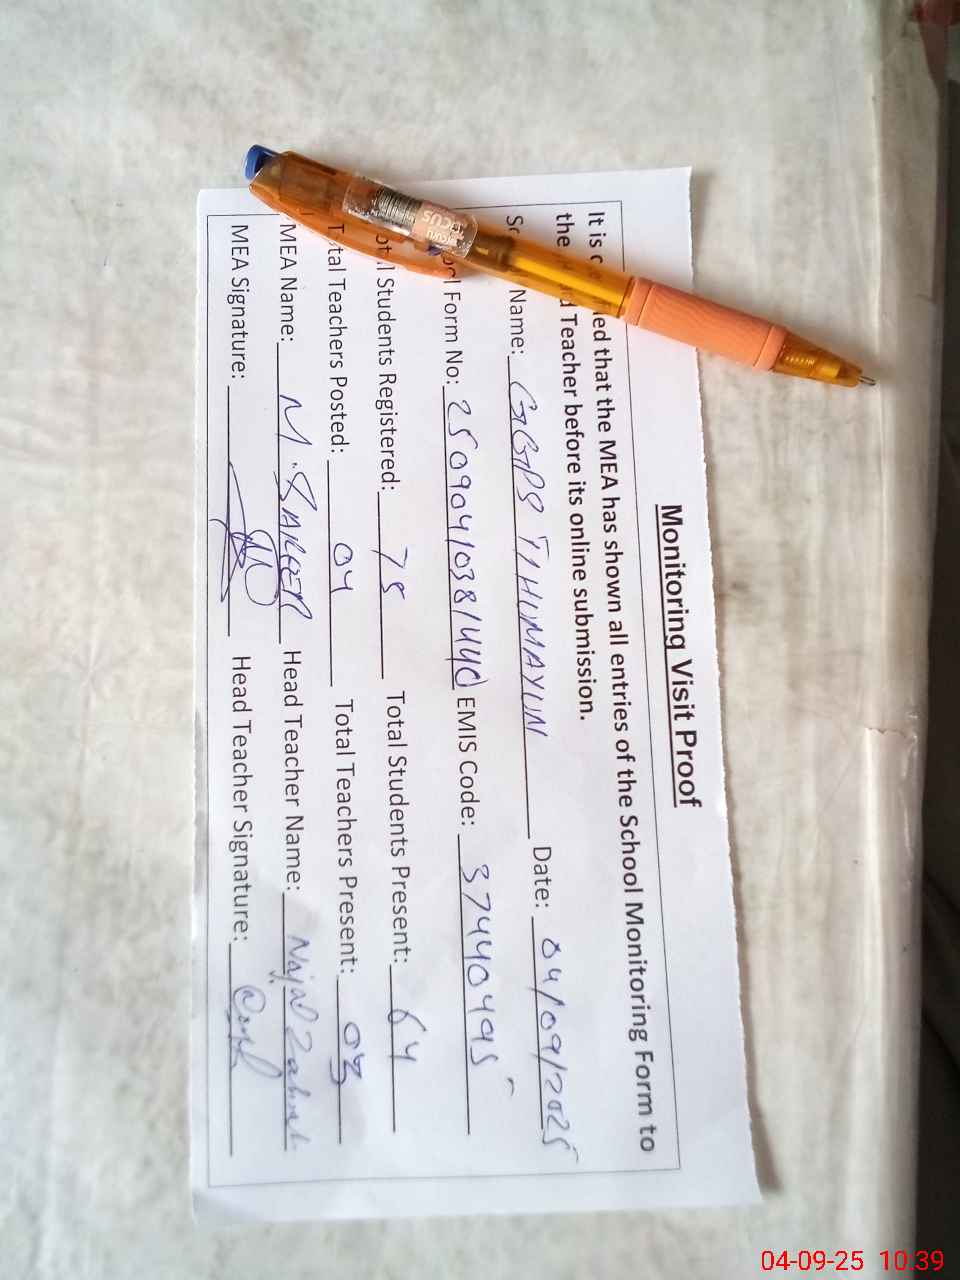 Monitoring Visit Proof
It is c ied that the MEA has shown all entries of the School Monitoring Form to
the d Teacher before its online submission.
Sc Name: GGPS TIHUMAYUN Date: 04/09/2025
ool Form No: 25090410381440 EMIS Code: 37440495
otal Students Registered: 78 Total Students Present: 64
Total Teachers Posted: 04 Total Teachers Present: 03
MEA Name: M. Head Teacher Name:
MEA Signature: Head Teacher Signature:
FOCUS
04-09-25 10:39